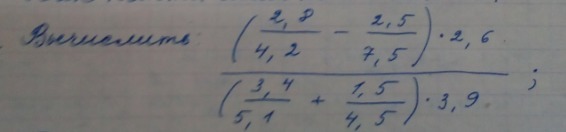 Вычислить
(2,8/4,2 - 2,5/7,5) · 2,6
(3,4/5,1 + 1,5/4,5) · 3,9 ;